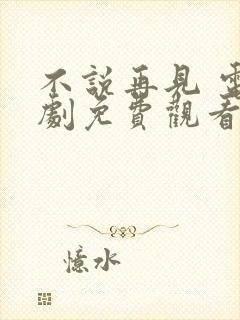 不說再見 電
劇免費觀看
憶水